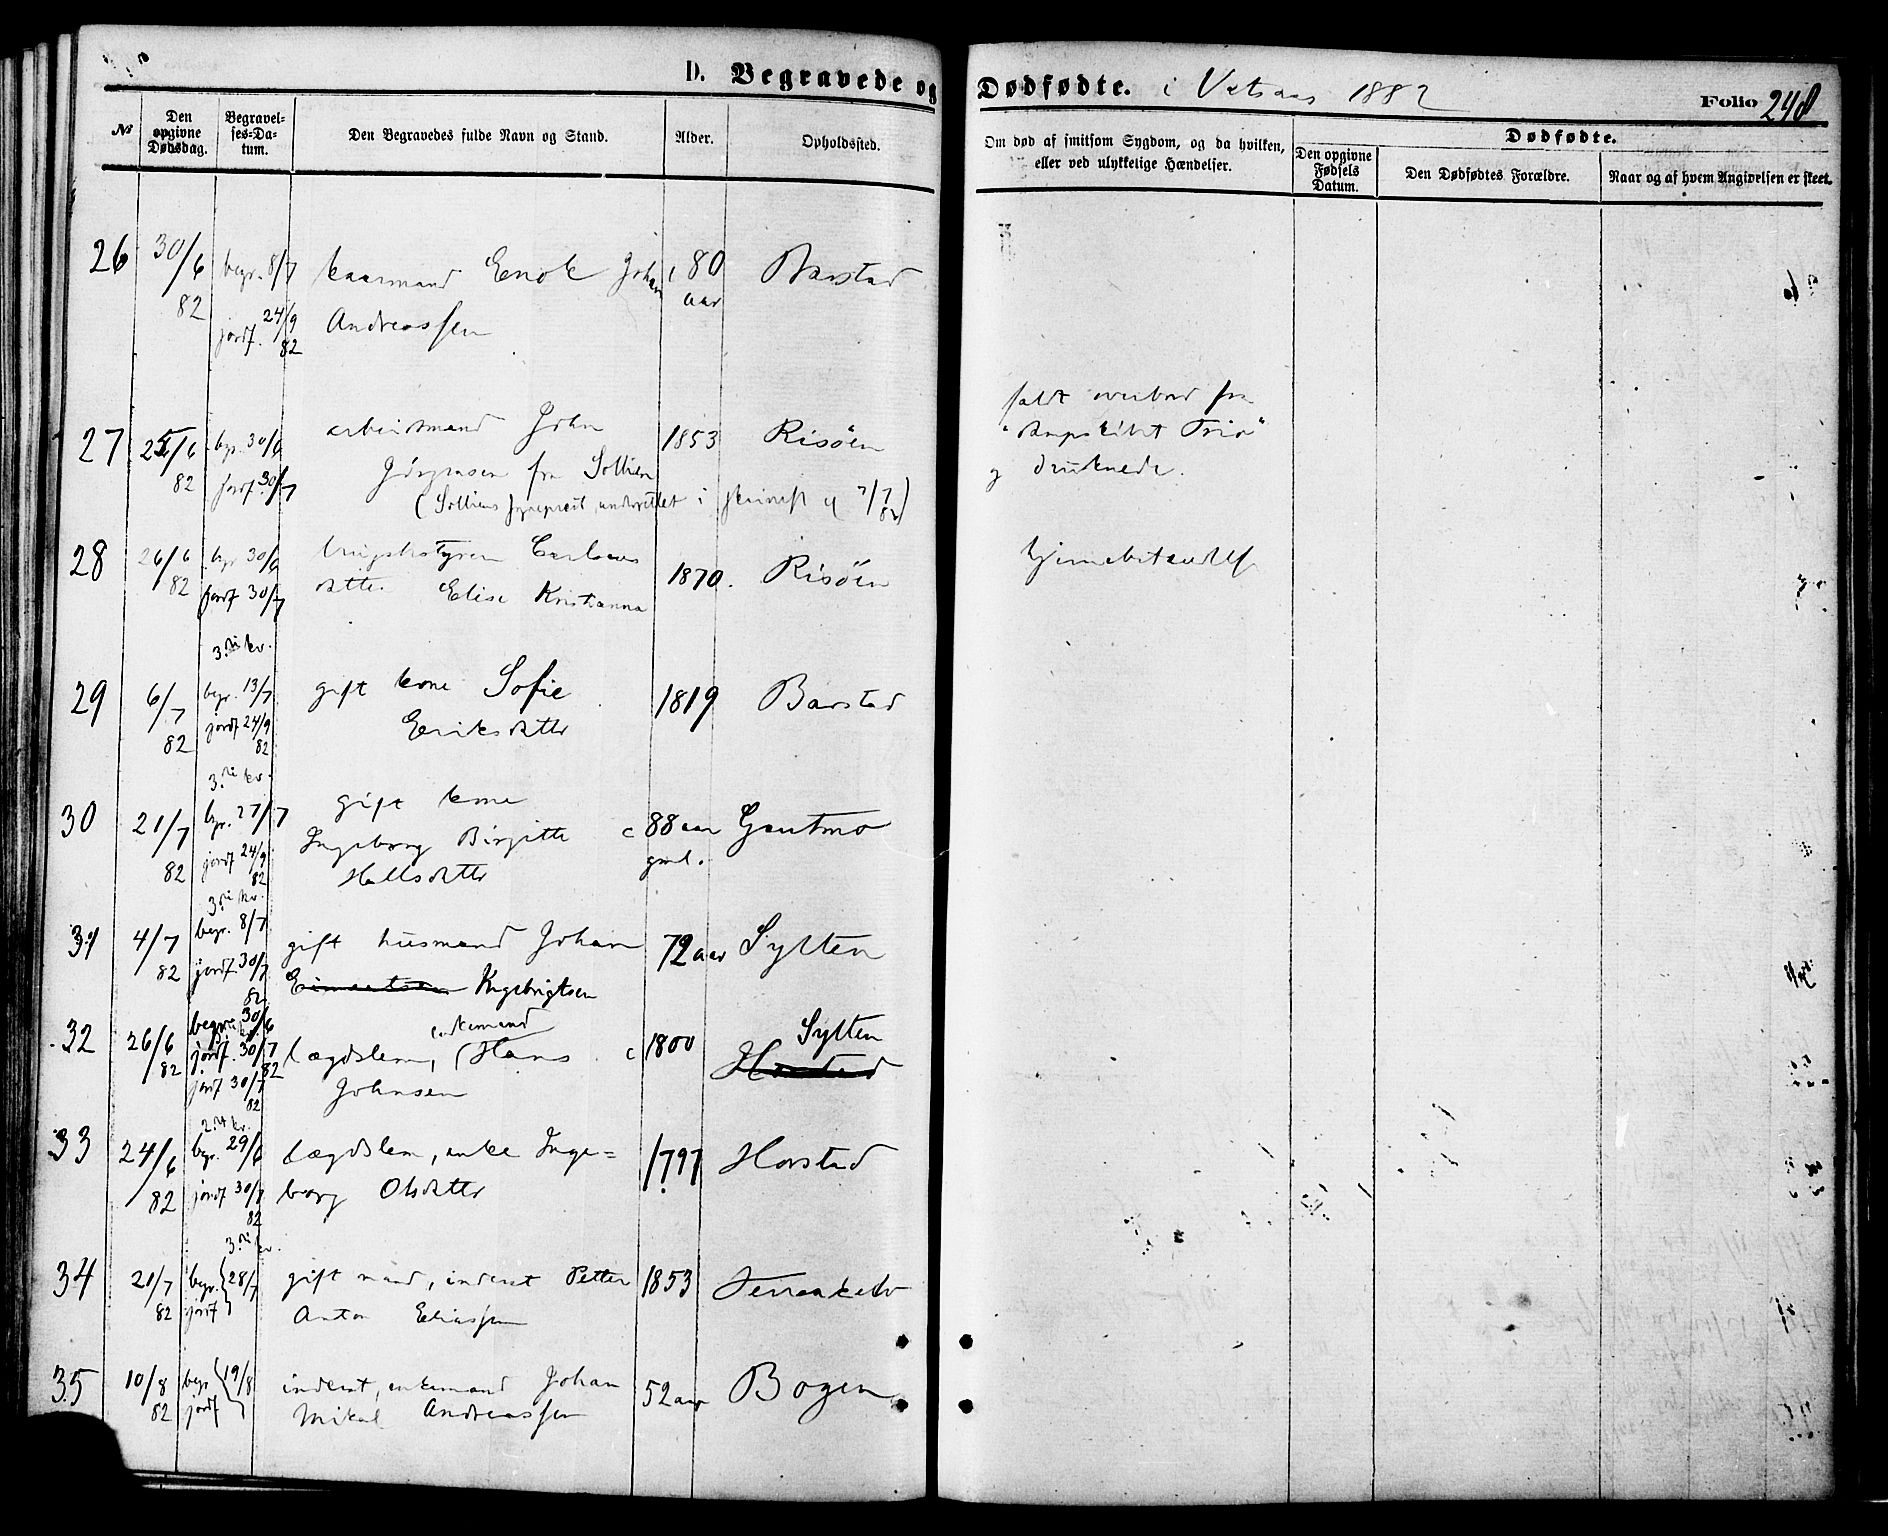 D. Begravede og Dødfødte. i 1882 Folio 248
No
Den opgivne Dødsdag.
Begravelses-Datum.
Den Begravedes fulde Navn og Stand.
Alder.
Opholdssted.
Om død af smitsom Sygdom, og da hvilken, eller ved ulykkelige Hændelser.
Dødfødte.
Den opgivne Fødsels Datum.
Den Dødfødtes Forældre.
Naar og af hvem Angivelsen er skeet.
26 30/6 begr. 8/7 kaarmand Enok Johan 80 Barstad
82 jordf. 24/9 Andreassen aar
82
faldt overbord fra
27 25/6 begr. 30/6 arbeidsmand John 1853 Risöen
82 jordf 30/7 Jörgensen fra Sollien og druknede.
(Solliens underrettet i 7/7 82)
28 26/6 begr 30/6 1870. Risöen hjernebetændelse
82 jordf 30/7 datter Elise Kristianna
3die kr.
29 6/7 begr. 13/7 gift kone Sofie 1819 Barstad
82 jordf 24/9 Eriksdatter
82
3die kr.
30 21/7 begr. 27/7 gift kone
Ingeborg Birgitte c 88 aar Gautmo
82 jordf 24/9 Hallsdatter gml.
82
3die kr.
31 4/7 begr. 8/7 gift husmand Johan 72 aar Sytten
82 jordf. 30/7 Ingebrigtsen
82
32 26/6 30/6 enkemand Sytten
82 jordf. 30/7 lægdslem, Hans c 1800 Horstad
82
jordf 30/7 Johnsen
82
33 24/6 begr. 29/6 lægdslem, enke Inge= 1797 Horstad
82 jordf 30/7 borg Olsdatter
82
3die kr.
34 21/7 begr. 28/7 gift mand, inderst Petter 1853
82 jordf Anton Eliassen
35 10/8 begr 19/8 inderst, enkemand Johan 52 aar Bogen
82 jordf Mikal Andreassen